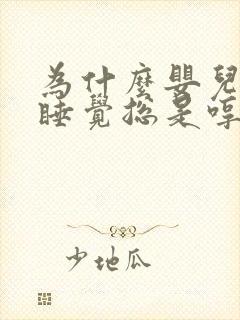 為什麼嬰兒
睡覺總是哼
少地瓜